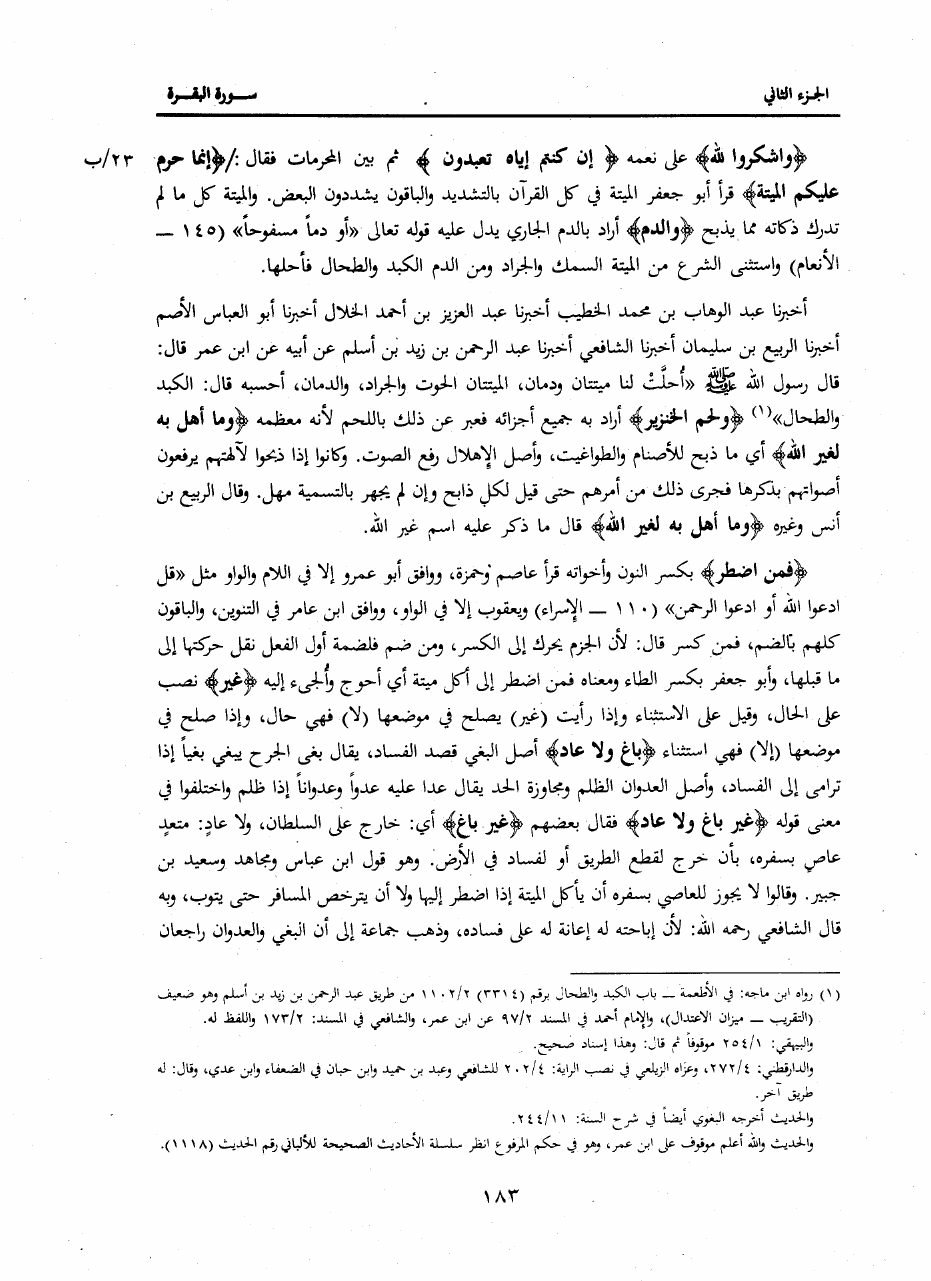 الجزء الثاني
سورة البقرة
﴿واشكروا لله﴾ على نعمه ﴿ إن كنتم إياه تعبدون ﴾ ثم بين المحرمات فقال :/﴿إنما حرم ٢٣/ب
عليكم الميتة﴾ قرأ أبو جعفر الميتة في كل القرآن بالتشديد والباقون يشددون البعض. والميتة كل ما لم
تدرك ذكاته مما يذبح ﴿والدم﴾ أراد بالدم الجاري يدل عليه قوله تعالى «أو دماً مسفوحاً» (١٤٥ —
الأنعام) واستثنى الشرع من الميتة السمك والجراد ومن الدم الكبد والطحال فأحلها.
أخبرنا عبد الوهاب بن محمد الخطيب أخبرنا عبد العزيز بن أحمد الخلال أخبرنا أبو العباس الأصم
أخبرنا الربيع بن سليمان أخبرنا الشافعي أخبرنا عبد الرحمن بن زيد بن أسلم عن أبيه عن ابن عمر قال:
قال رسول الله ﷺ «أُحلَّتْ لنا ميتتان ودمان، الميتتان الحوت والجراد، والدمان، أحسبه قال: الكبد
والطحال»(١) ﴿ولحم الخنزير﴾ أراد به جميع أجزائه فعبر عن ذلك باللحم لأنه معظمه ﴿وما أهل به
لغير الله﴾ أي ما ذبح للأصنام والطواغيت، وأصل الإهلال رفع الصوت. وكانوا إذا ذبحوا لآلهتهم يرفعون
أصواتهم بذكرها فجرى ذلك من أمرهم حتى قيل لكل ذابح وإن لم يجهر بالتسمية مهل. وقال الربيع بن
أنس وغيره ﴿وما أهل به لغير الله﴾ قال ما ذكر عليه اسم غير الله.
﴿فمن اضطر﴾ بكسر النون وأخواته قرأ عاصم وحمزة، ووافق أبو عمرو إلا في اللام والواو مثل «قل
ادعوا الله أو ادعوا الرحمن» (١١٠ — الإسراء) ويعقوب إلا في الواو، ووافق ابن عامر في التنوين، والباقون
كلهم بالضم، فمن كسر قال: لأن الجزم يحرك إلى الكسر، ومن ضم فلضمة أول الفعل نقل حركتها إلى
ما قبلها، وأبو جعفر بكسر الطاء ومعناه فمن اضطر إلى أكل ميتة أي أحوج وأُلجىء إليه ﴿غير﴾ نصب
على الحال، وقيل على الاستثناء وإذا رأيت (غير) يصلح في موضعها (لا) فهي حال، وإذا صلح في
موضعها (إلا) فهي استثناء ﴿باغ ولا عاد﴾ أصل البغي قصد الفساد، يقال بغى الجرح يبغي بغياً إذا
ترامى إلى الفساد، وأصل العدوان الظلم ومجاوزة الحد يقال عدا عليه عدواً وعدواناً إذا ظلم واختلفوا في
معنى قوله ﴿غير باغ ولا عاد﴾ فقال بعضهم ﴿غير باغ﴾ أي: خارج على السلطان، ولا عادٍ: متعدٍ
عاص بسفره، بأن خرج لقطع الطريق أو لفساد في الأرض. وهو قول ابن عباس ومجاهد وسعيد بن
جبير. وقالوا لا يجوز للعاصي بسفره أن يأكل الميتة إذا اضطر إليها ولا أن يترخص المسافر حتى يتوب، وبه
قال الشافعي رحمه الله: لأن إباحته له إعانة له على فساده، وذهب جماعة إلى أن البغي والعدوان راجعان
(١) رواه ابن ماجه: في الأطعمة — باب الكبد والطحال برقم (٣٣١٤) ١١٠٢/٢ من طريق عبد الرحمن بن زيد بن أسلم وهو ضعيف
(التقريب — ميزان الاعتدال)، والإمام أحمد في المسند ٩٧/٢ عن ابن عمر، والشافعي في المسند: ١٧٣/٢ واللفظ له.
والبيهقي: ٢٥٤/١ موقوفاً ثم قال: وهذا إسناد صحيح.
والدارقطني: ٢٧٢/٤، وعزاه الزيلعي في نصب الراية: ٢٠٢/٤ للشافعي وعبد بن حميد وابن حبان في الضعفاء وابن عدي، وقال: له
طريق آخر.
والحديث أخرجه البغوي أيضاً في شرح السنة: ٢٤٤/١١.
والحديث والله أعلم موقوف على ابن عمر، وهو في حكم المرفوع انظر سلسلة الأحاديث الصحيحة للألباني رقم الحديث (١١١٨).
١٨٣